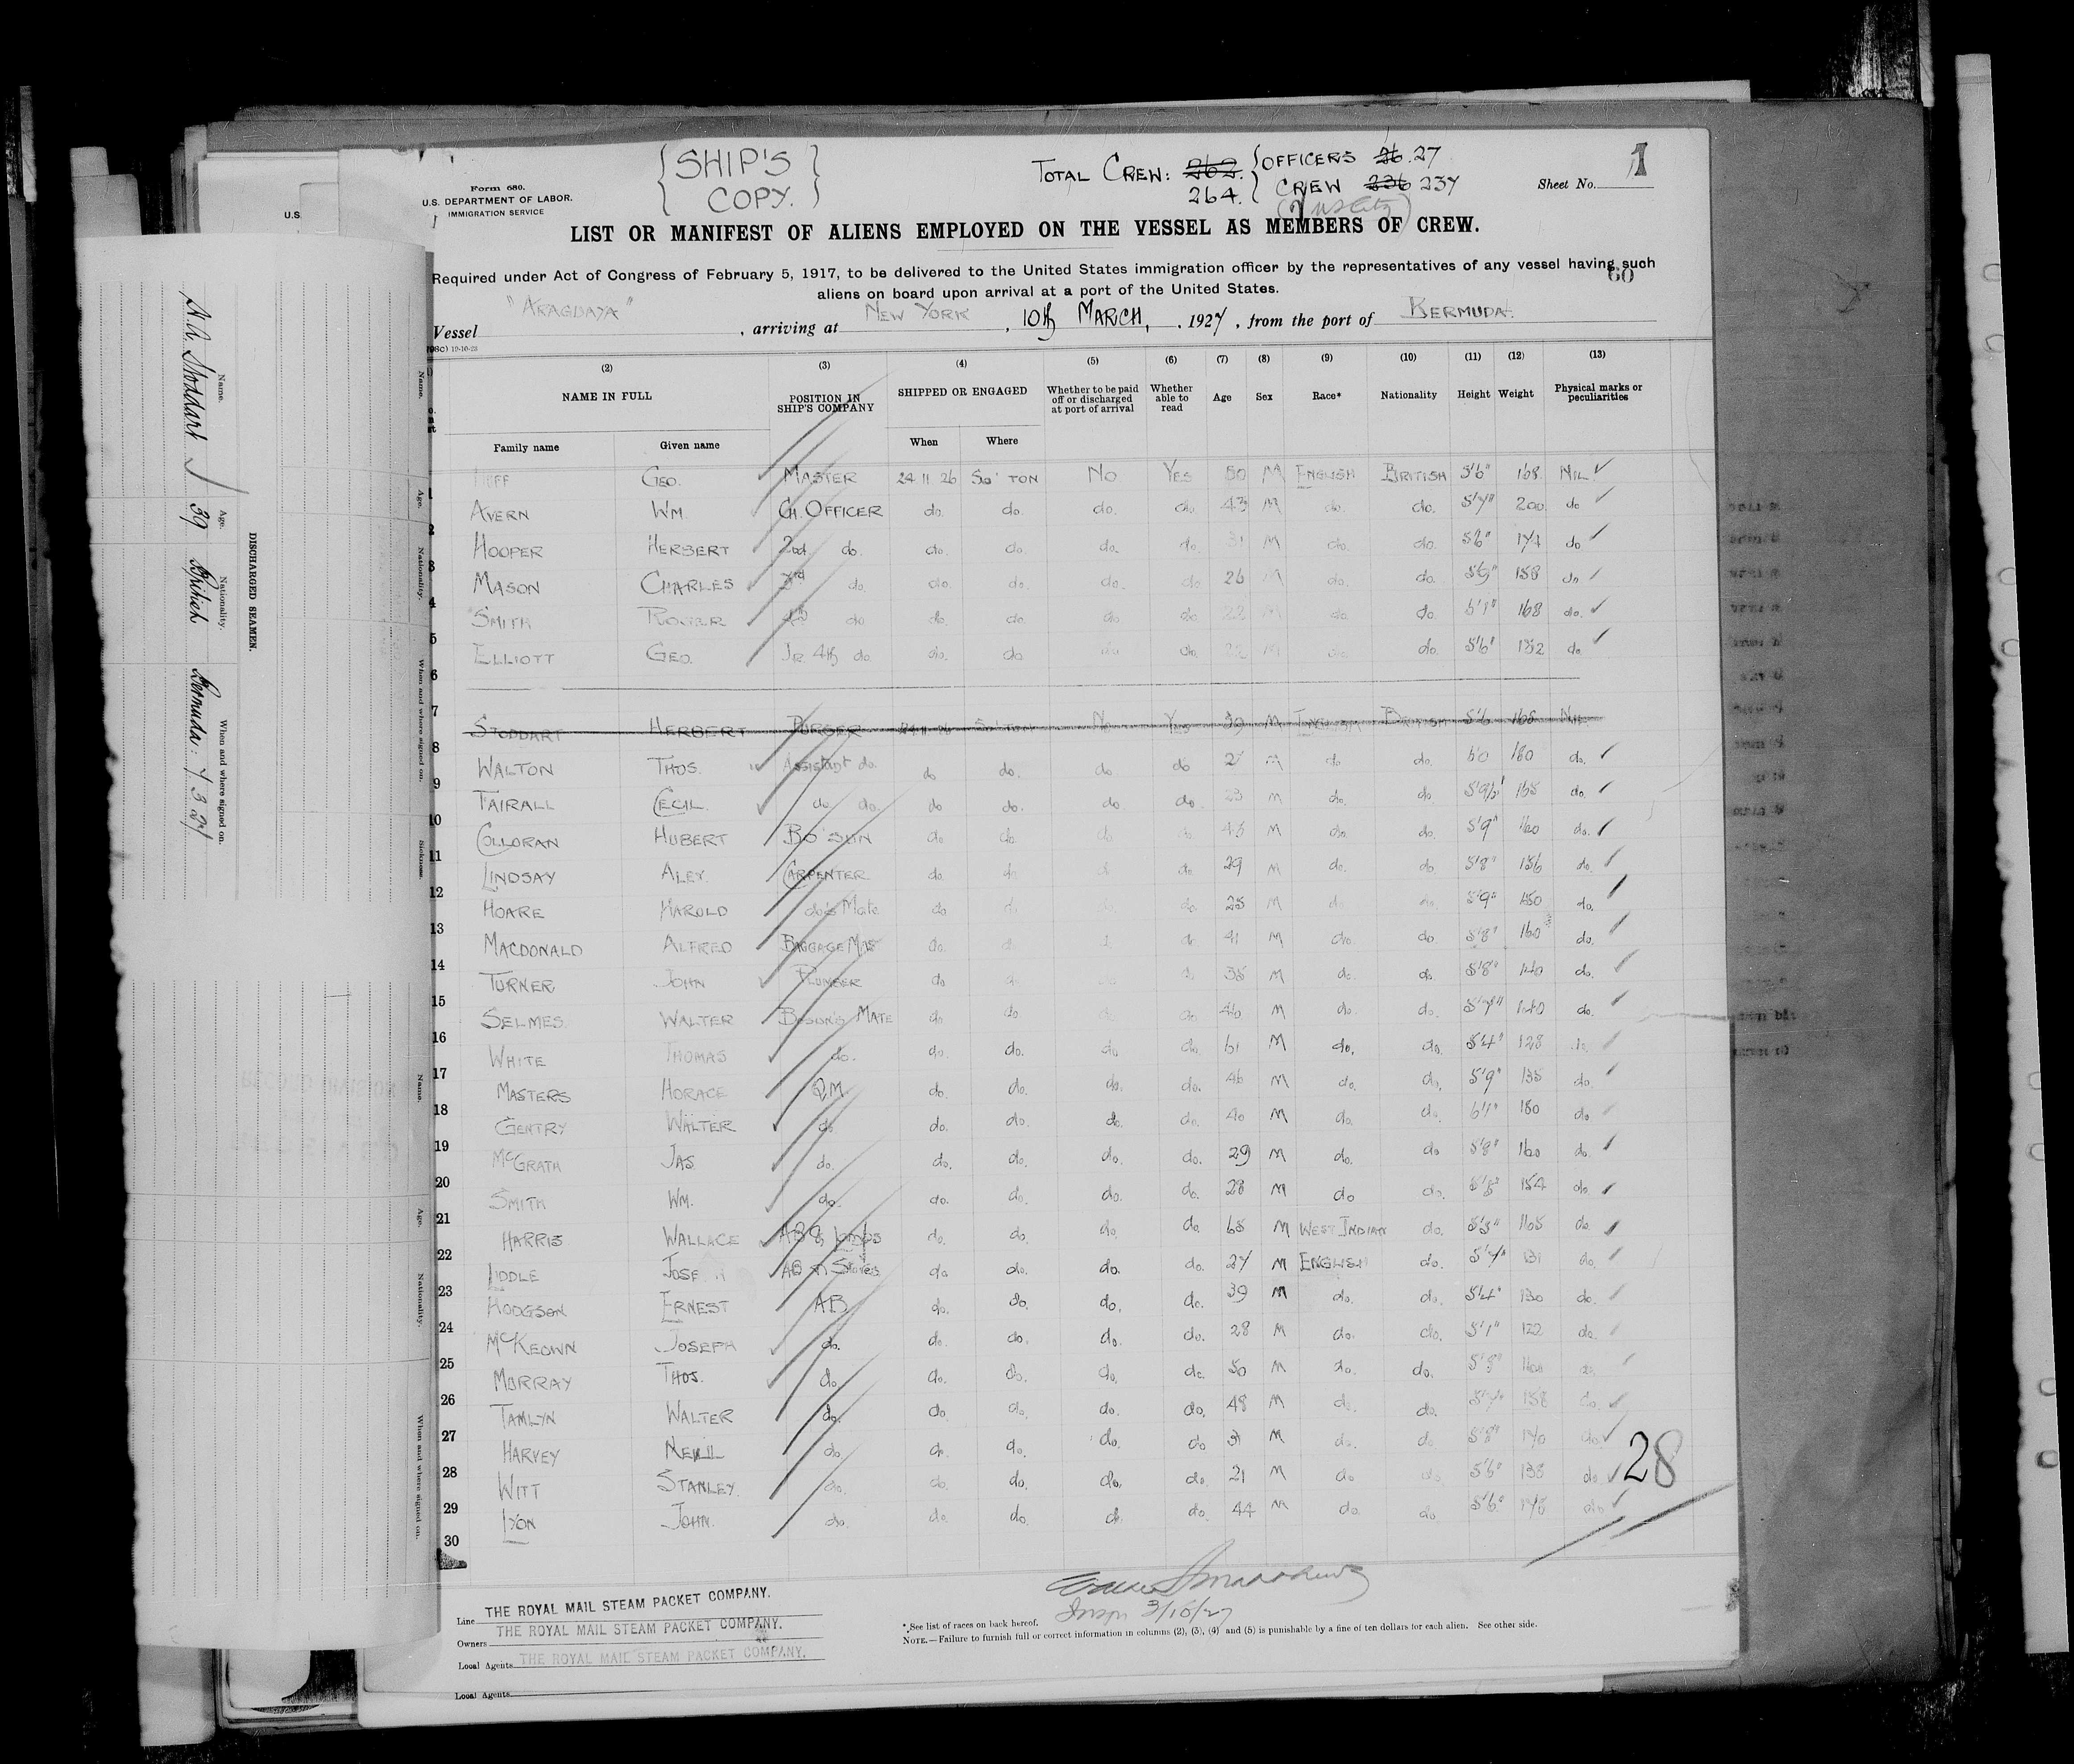 {SHIP'S COPY.}
TOTAL CREW: 262. 264. {OFFICERS 26. 27
{CREW 236 237
Form 680.
U.S. DEPARTMENT OF LABOR.
IMMIGRATION SERVICE
Sheet No. 1
U.S.
LIST OR MANIFEST OF ALIENS EMPLOYED ON THE VESSEL AS MEMBERS OF CREW.
Required under Act of Congress of February 5, 1917, to be delivered to the United States immigration officer by the representatives of any vessel having such
aliens on board upon arrival at a port of the United States.
60
Vessel "ARAGUAYA", arriving at NEW YORK, 10th MARCH, 1927, from the port of BERMUDA.
(2) (3) (4) (5) (6) (7) (8) (9) (10) (11) (12) (13)
NAME IN FULL POSITION IN SHIP'S COMPANY SHIPPED OR ENGAGED Whether to be paid off or discharged at port of arrival Whether able to read Age Sex Race* Nationality Height Weight Physical marks or peculiarities
Family name Given name When Where
GEO. MASTER 24 11 26 SO'TON NO YES 50 M ENGLISH BRITISH 5'6" 168 NIL
1 AVERN WM. CH. OFFICER do. do. do. do. 43 M do. do. 5'7" 200 do
2 HOOPER HERBERT 2nd do. do. do. do. do. 31 M do. do. 5'6" 174 do
3 MASON CHARLES 3rd do. do. do. do. do 26 M do. do. 5'9" 158 do
4 SMITH ROGER 4th do do. do. do do 22 M do. do. 5'7" 168 do.
5 ELLIOTT GEO. JR. 4th do. do. do do do. 22 M do. do. 5'6" 132 do.
6
7 STODDART HERBERT PURSER 24 11 26 SO'TON NO YES 39 M ENGLISH BRITISH 5'6 168 NIL
8 WALTON THOS. Assistant do. do do. do do 27 M do do. 6'0 180 do.
9 FAIRALL CECIL. do. do. do do. do do. 23 M do. do 5'9½" 165 do.
10 COLLORAN HUBERT BO'SUN do do. do. do. 43 M do. do. 5'9" 160 do.
11 LINDSAY ALEX. CARPENTER do. do. do do. 29 M do. do 5'8" 156 do.
12 HOARE HAROLD do's Mate do do do 25 M do do. 5'9" 150 do.
13 MACDONALD ALFRED BAGGAGE MAS do. do. do 41 M do. do 5'8" 160 do.
14 TURNER JOHN PLUMBER do do 35 M do. do 5'8" 140 do.
15 SELMES. WALTER BOSUN'S MATE do do do do. 40 M do. do. 5'7" 140 do.
16 WHITE THOMAS do. do. do. do do. 61 M do. do. 5'4" 128 do.
17 MASTERS HORACE Q.M. do. do. do. do. 46 M do. do. 5'9" 135 do.
18 GENTRY WALTER do do. do. do. do. 40 M do. do. 6'1" 180 do
19 McGRATH JAS. do. do. do. do. do. 29 M do. do 5'8" 160 do.
20 SMITH WM. do. do. do. do. do. 28 M do do. 5'8" 154 do.
21 HARRIS WALLACE AB & Lamps do. do. do. do. 65 M WEST INDIAN do. 5'3" 165 do.
22 LIDDLE AB & Stores do. do. do. do. 27 M ENGLISH do. 5'7" 131 do.
23 HODGSON ERNEST AB do. do. do. do. 39 M do. do. 5'4" 130 do.
24 McKEOWN JOSEPH do. do. do. do. do. 28 M do. do. 5'1" 122 do.
25 MURRAY THOS. do do. do. do. do. 50 M do. do. 5'8" do.
26 TAMLYN WALTER do. do. do. do. do. 48 M do. do. 5'7" 158 do.
27 HARVEY NEVIL do. do. do. do. do 31 M do. do 5'8" 140 do.
28 WITT STANLEY. do. do. do. do. do. 21 M do do 5'6" 138 do
29 LYON JOHN. do. do. do. do. do. 44 M do. do. 5'6" 148 do
30
28
Line THE ROYAL MAIL STEAM PACKET COMPANY.
Owners THE ROYAL MAIL STEAM PACKET COMPANY.
Local Agents THE ROYAL MAIL STEAM PACKET COMPANY.
Local Agents
Insp 3/10/27
* See list of races on back hereof.
NOTE.—Failure to furnish full or correct information in columns (2), (3), (4) and (5) is punishable by a fine of ten dollars for each alien. See other side.
DISCHARGED SEAMEN.
Name. Age. Nationality. When and where signed on.
Stoddart 39 British Bermuda: 7 3 27
Name. Age. Nationality. When and where signed on. Sickness.
Name. Age. Nationality. When and where signed on.